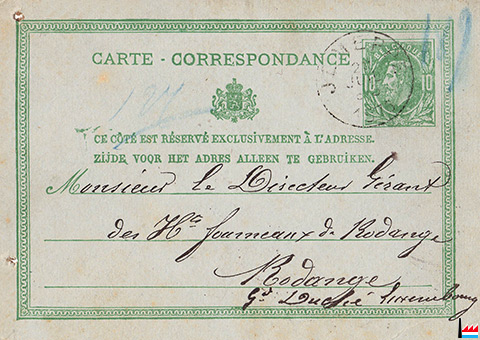 CARTE - CORRESPONDANCE
10 10
CE CÔTÉ EST RÉSERVÉ EXCLUSIVEMENT À L'ADRESSE.
ZIJDE VOOR HET ADRES ALLEEN TE GEBRUIKEN.
Monsieur le Directeur Gérant
des Hts fourneaux de Rodange
Rodange
Gd Duché Luxembourg